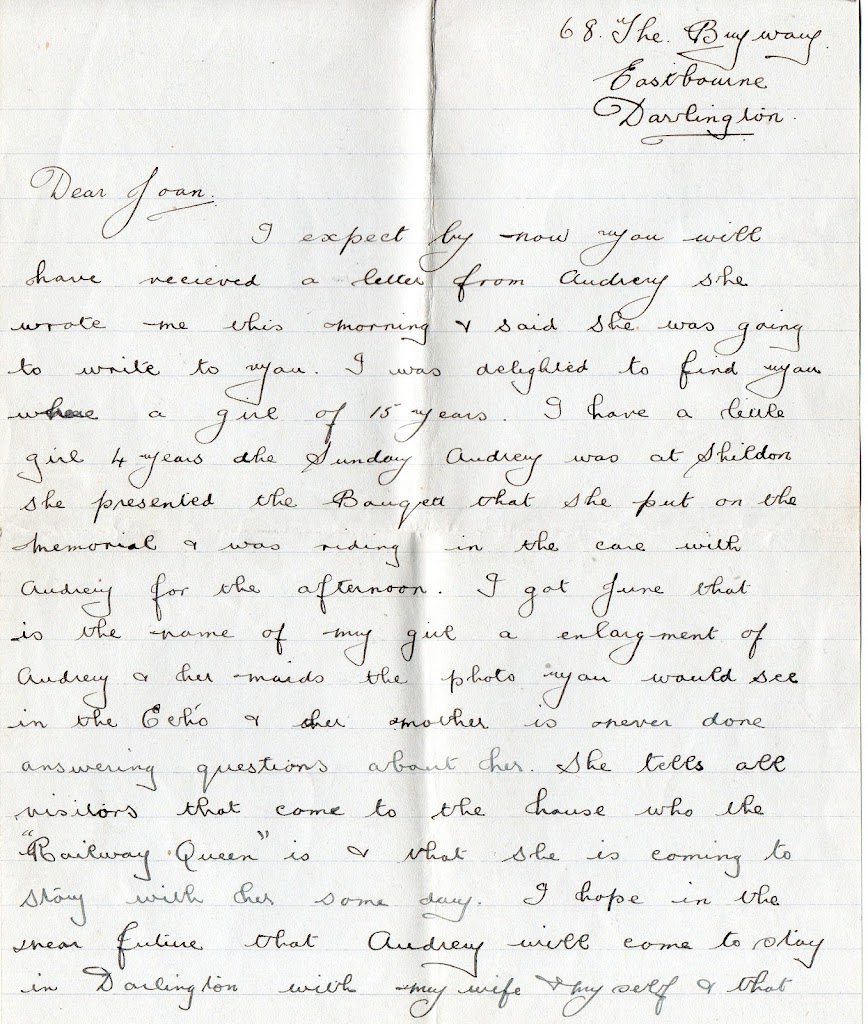 68. The Byway.
Eastbourne
Darlington.
Dear Joan.
I expect by now you will
have recieved a letter from Audrey she
wrote me this morning & said she was going
to write to you. I was delighted to find you
where a girl of 15 years. I have a little
girl 4 years the Sunday Audrey was at Shildon
she presented the Bouqett that she put on the
memorial & was riding in the care with
Audrey for the afternoon. I got June that
is the name of my girl a enlargment of
Audrey & her maids the photo you would see
in the Echo & her mother is never done
answering questions about her. She tells all
visitors that come to the house who the
"Railway Queen" is & that she is coming to
stay with her some day. I hope in the
near future that Audrey will come to stay
in Darlington with my wife & my self & that